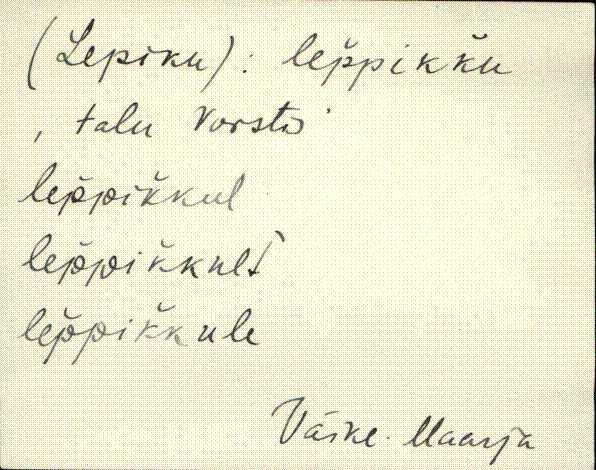 (Lepiku): lep̆pik̆ku
, talu Vorstis
lep̆pik̆kul
lep̆pik̆kult
lep̆pik̆kule
Väike-Maarja